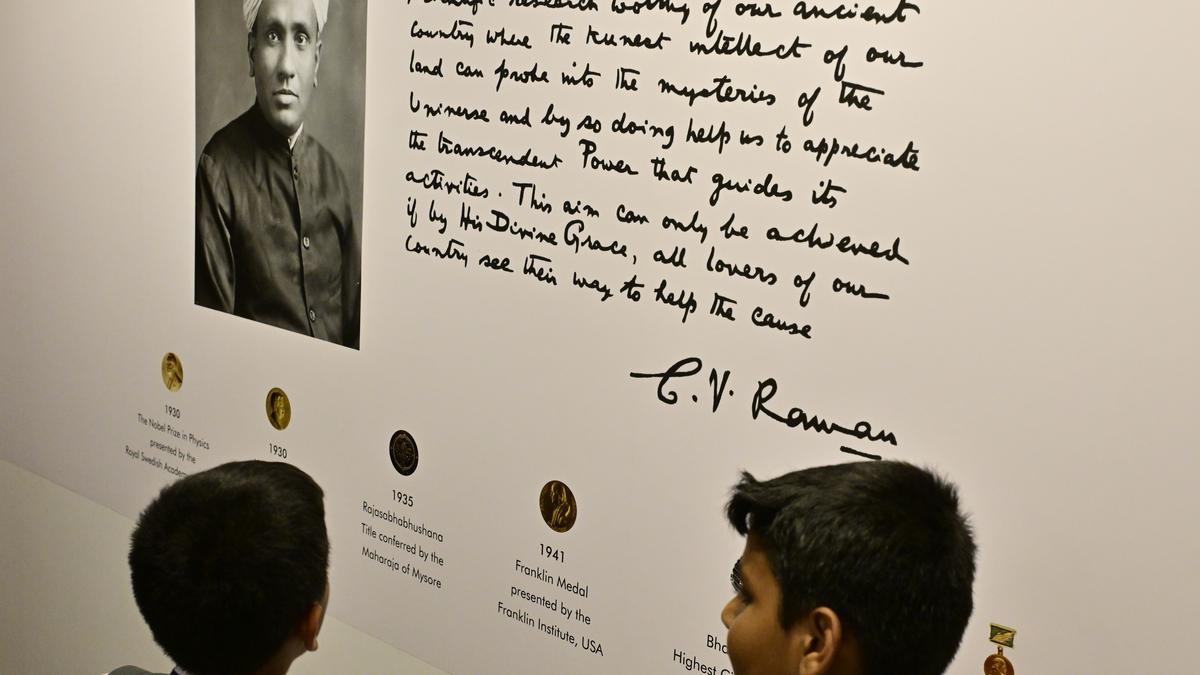 research worthy of our ancient
country where the keenest intellect of our
land can probe into the mysteries of the
Universe and by so doing help us to appreciate
the transcendent Power that guides its
activities. This aim can only be achieved
if by His Divine Grace, all lovers of our
country see their way to help the cause
C. V. Raman
1930
The Nobel Prize in Physics
presented by the
Royal Swedish
1930
1935
Rajasabhabhushana
Title conferred by the
Maharaja of Mysore
1941
Franklin Medal
presented by the
Franklin Institute, USA
Highest